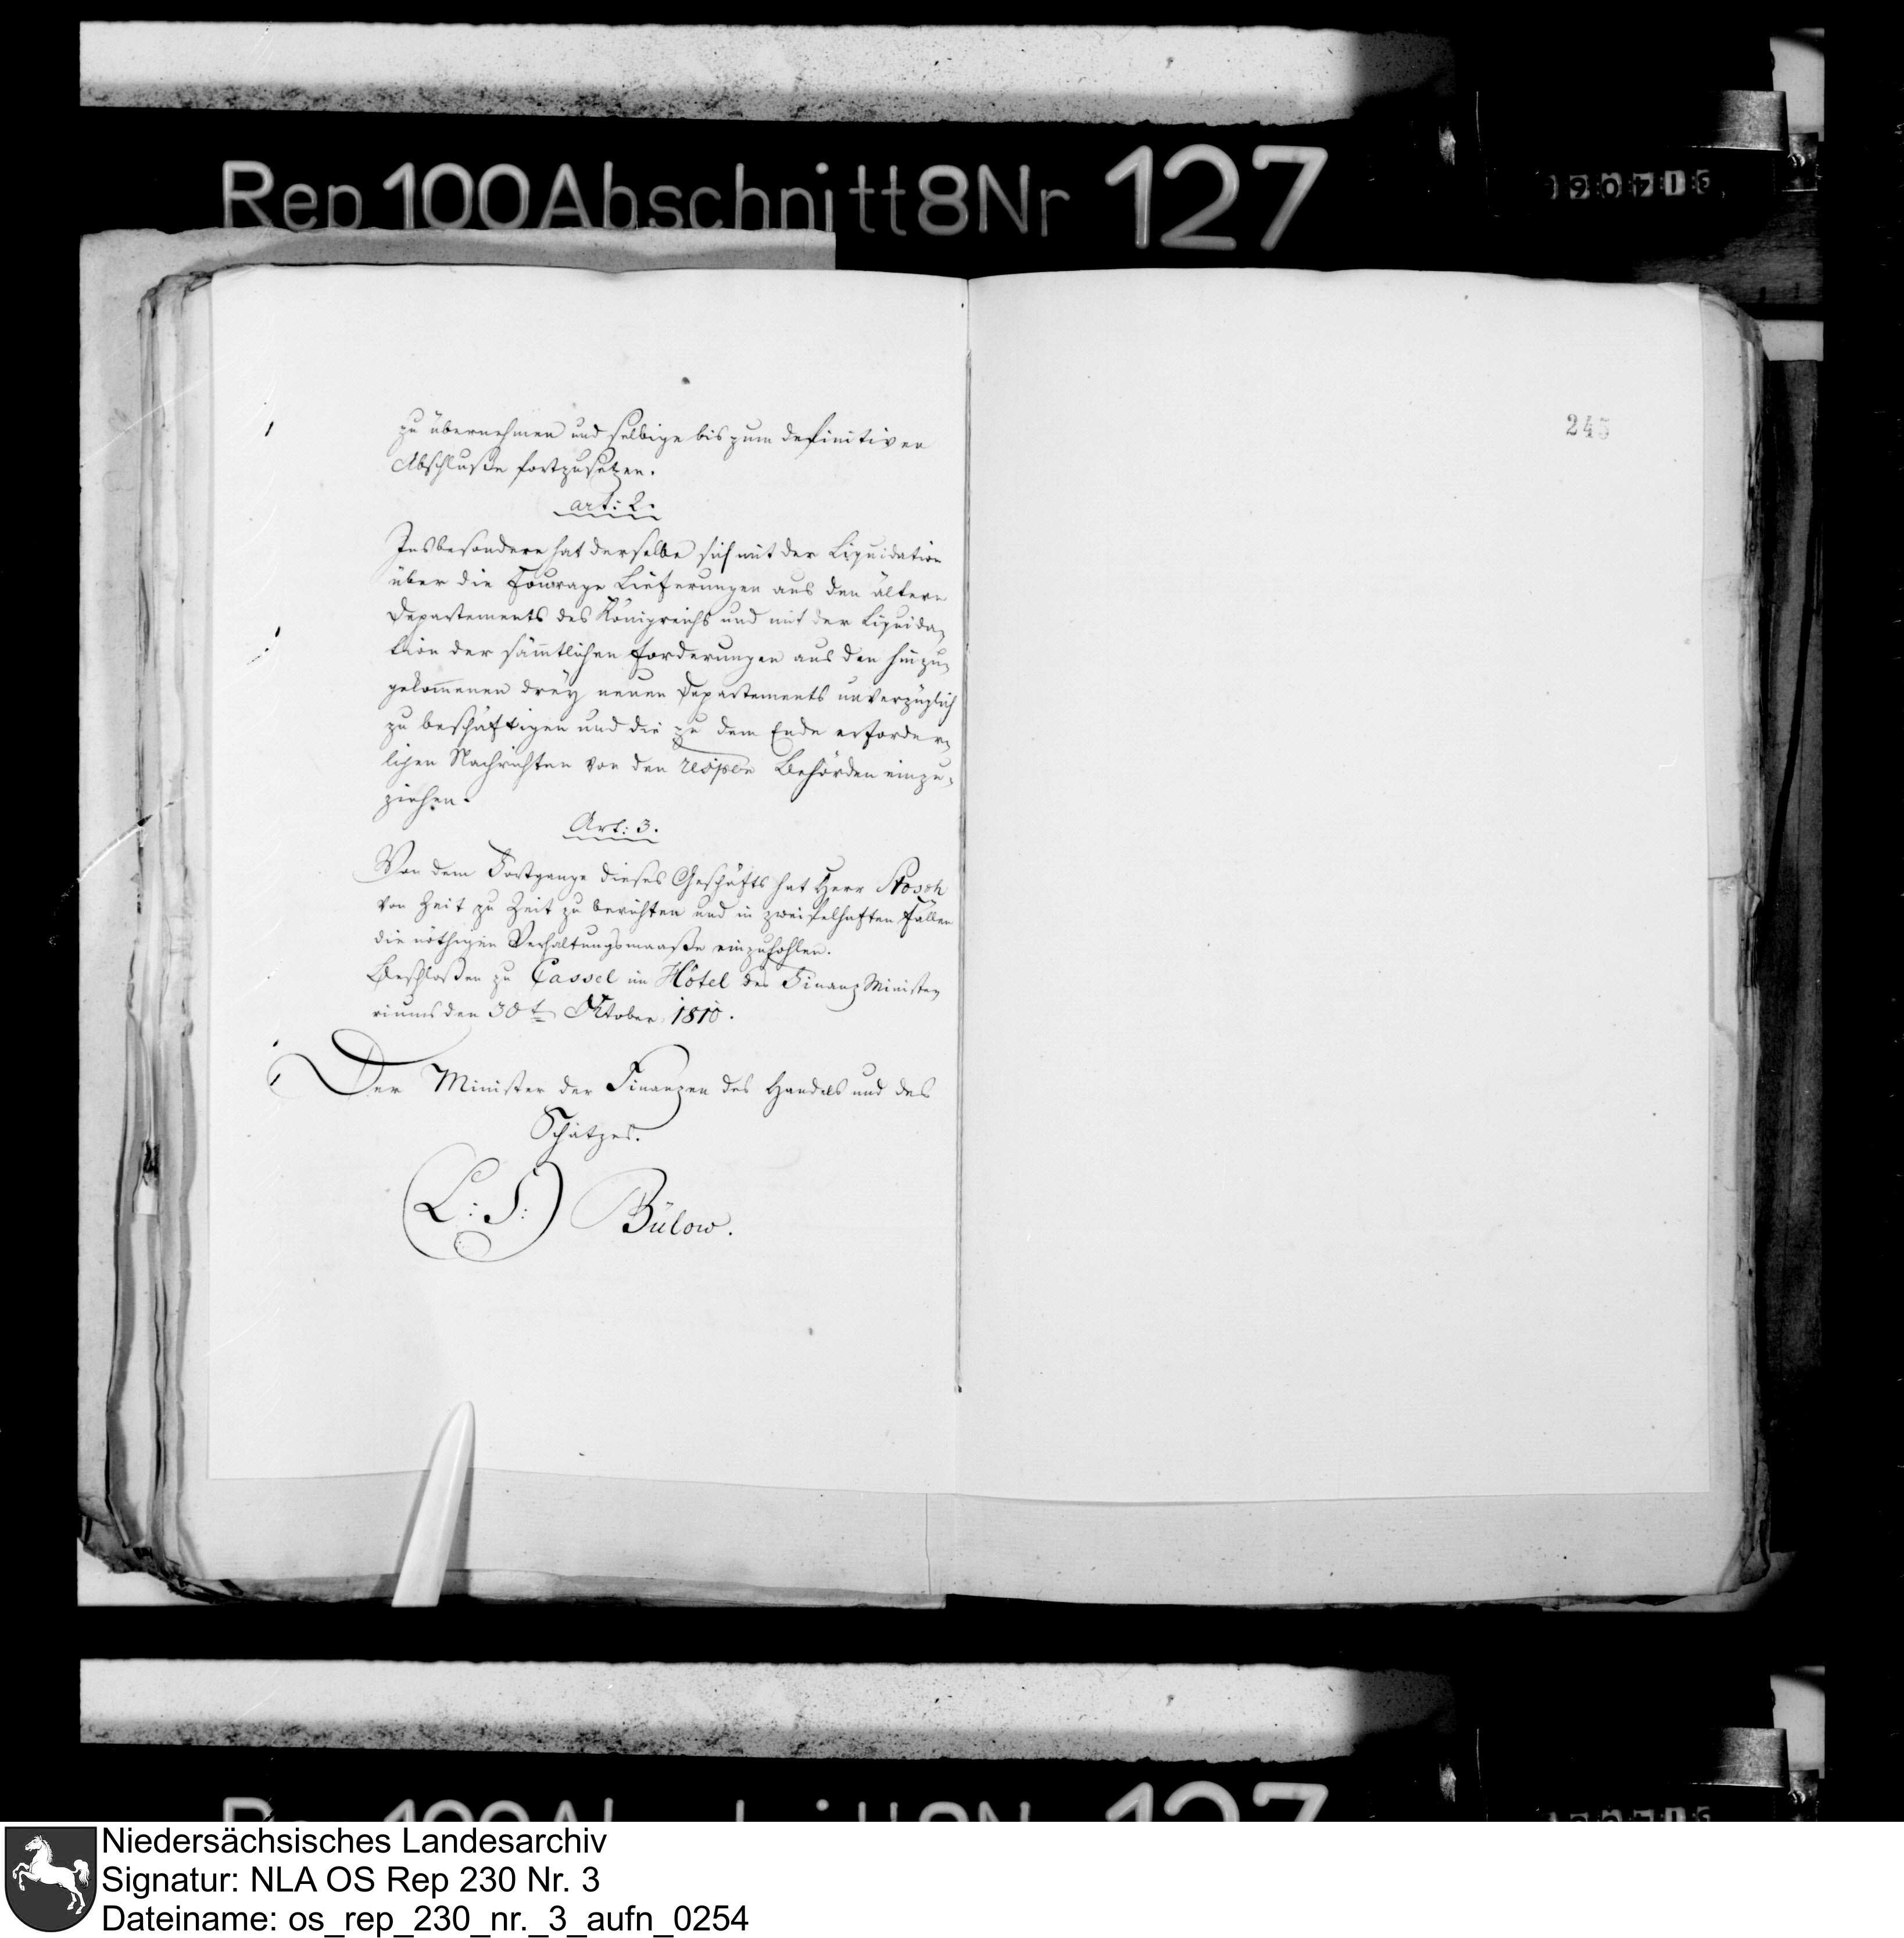 Rep 100 Abschnitt 8 Nr 127
zu übernehmen und selbige bis zum definitiven
Abschluße fortzusetzen.
art: 2.
Insbesondere hat derselbe sich mit der Liquidation
über die Fourage Lieferungen aus den ältern
Departements des Königreichs und mit der Liquida-
tion der sämtlichen Forderungen aus den hinzu-
gekommenen drey neuen Departements unverzüglich
zu beschäftigen und die zu dem Ende erforder-
lichen Nachrichten von den respen Behörden einzu-
ziehen.
Art: 3.
Von dem Fortgange dieses Geschäfts hat Herr Stosch
von Zeit zu Zeit zu berichten und in zweifelhaften Fällen
die nöthigen Verhaltungsmaaße einzuhohlen.
Beschloßen zu Cassel im Hôtel des Finanz Ministe-
riums den 30t Oktober 1810.
Der Minister der Finanzen des Handels und des
Schatzes.
(L: S:) Bülow.
245
Niedersächsisches Landesarchiv
Signatur: NLA OS Rep 230 Nr. 3
Dateiname: os_rep_230_nr._3_aufn_0254